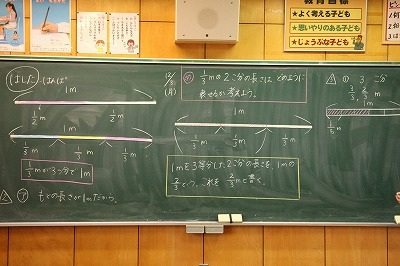 教育目標
★よく考える子ども
★思いやりのある子ども
★じょうぶな子ども
はした
はんぱ
1m
1/2 m
1/2 m
1m
1/3 m
1/3 m
1/3 m
1/3 mが3つ分で1m
もとの長さが1mだから。
(月)
1/3 mの2こ分の長さは、どのように
表せるか考えよう。
1m
1/3 m
1/3 m
1/3 m
1mを3等分した2こ分の長さを、1mの
2/3といい、これを 2/3 mと書く。
① 3こ分
3/3, 2/3 m
1m